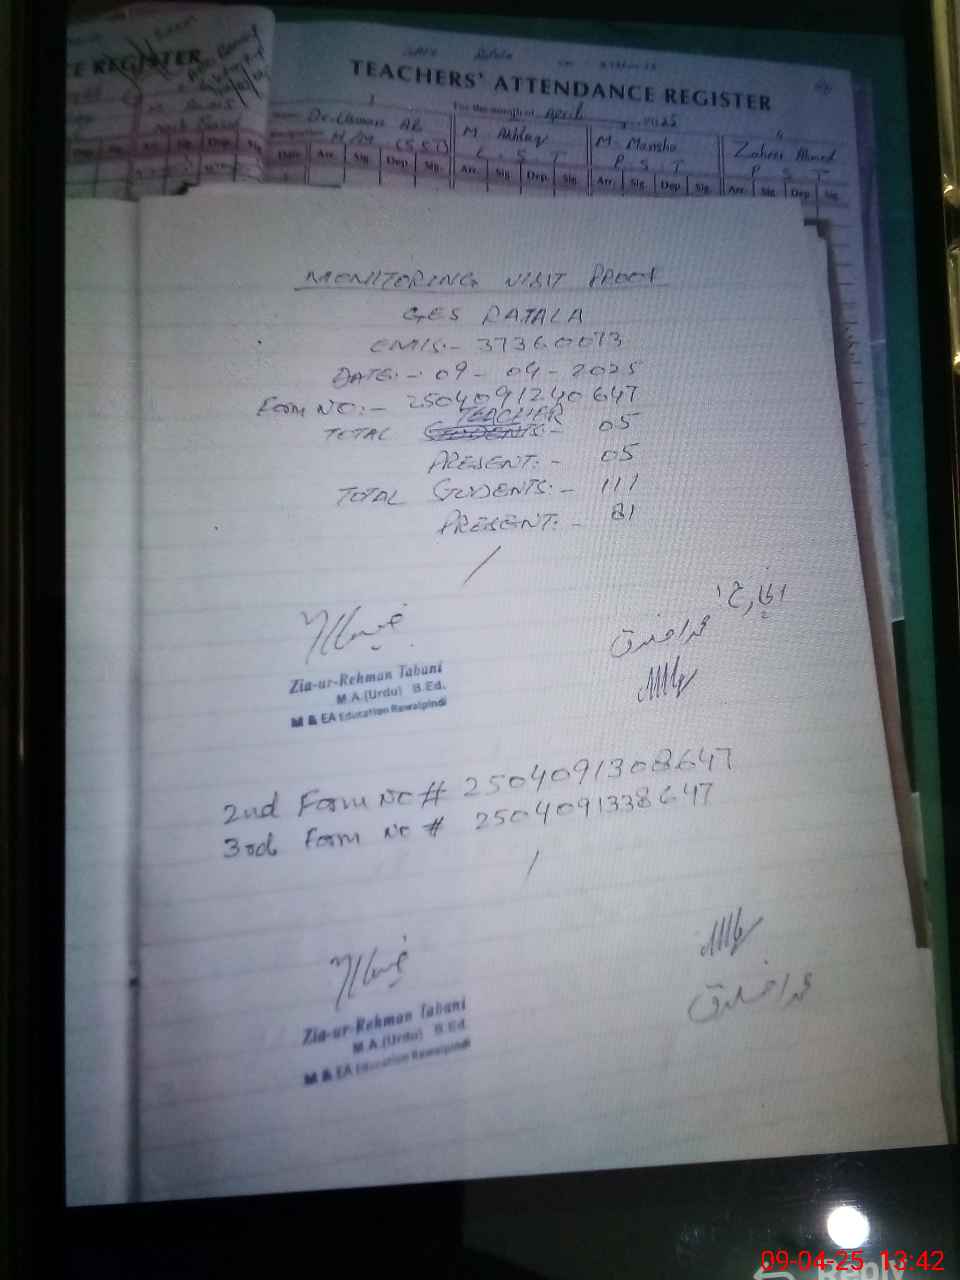 E REGISTER
TEACHERS' ATTENDANCE REGISTER
For the month of April 2025
Dr. Usman Ali
M. Akhlaq
M. Mansha
Zaheer Ahmed
H/M (S.S.T)
P S T
P S T
Date Arr. Sig. Dep. Sig. Arr. Sig. Dep. Sig. Arr. Sig. Dep. Sig. Arr. Sig. Dep. Sig.
MONITORING VISIT PROOF
GES RATALA
EMIS:- 37360073
DATE:- 09-04-2025
FORM NO:- 2504091240647
TOTAL TEACHER:- 05
PRESENT:- 05
TOTAL STUDENTS:- 111
PRESENT:- 81
انچارج
محمد اخلاق
Zia-ur-Rehman Tabani
M.A.(Urdu) B.Ed.
M & EA Education Rawalpindi
2nd Form No # 2504091308647
3rd Form No # 2504091338647
محمد اخلاق
Zia-ur-Rehman Tabani
M.A.(Urdu) B.Ed.
M & EA Education Rawalpindi
09-04-25 13:42